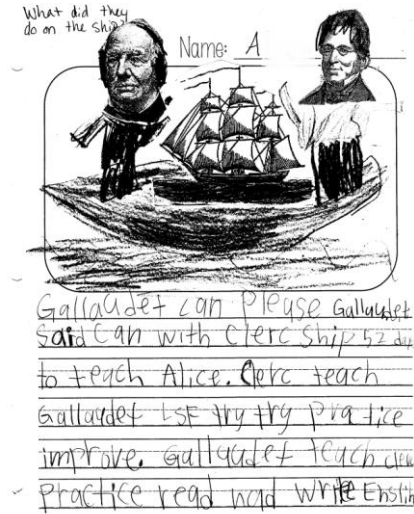 What did they
do on the ship?
Name: A
Gallaudet can please Gallaudet
Said Can with Clerc Ship 52 day
to teach Alice. Clerc teach
Gallaudet LSF try try pra tice
improve. Gallaudet teach clerc
Practice read nad write Enslih